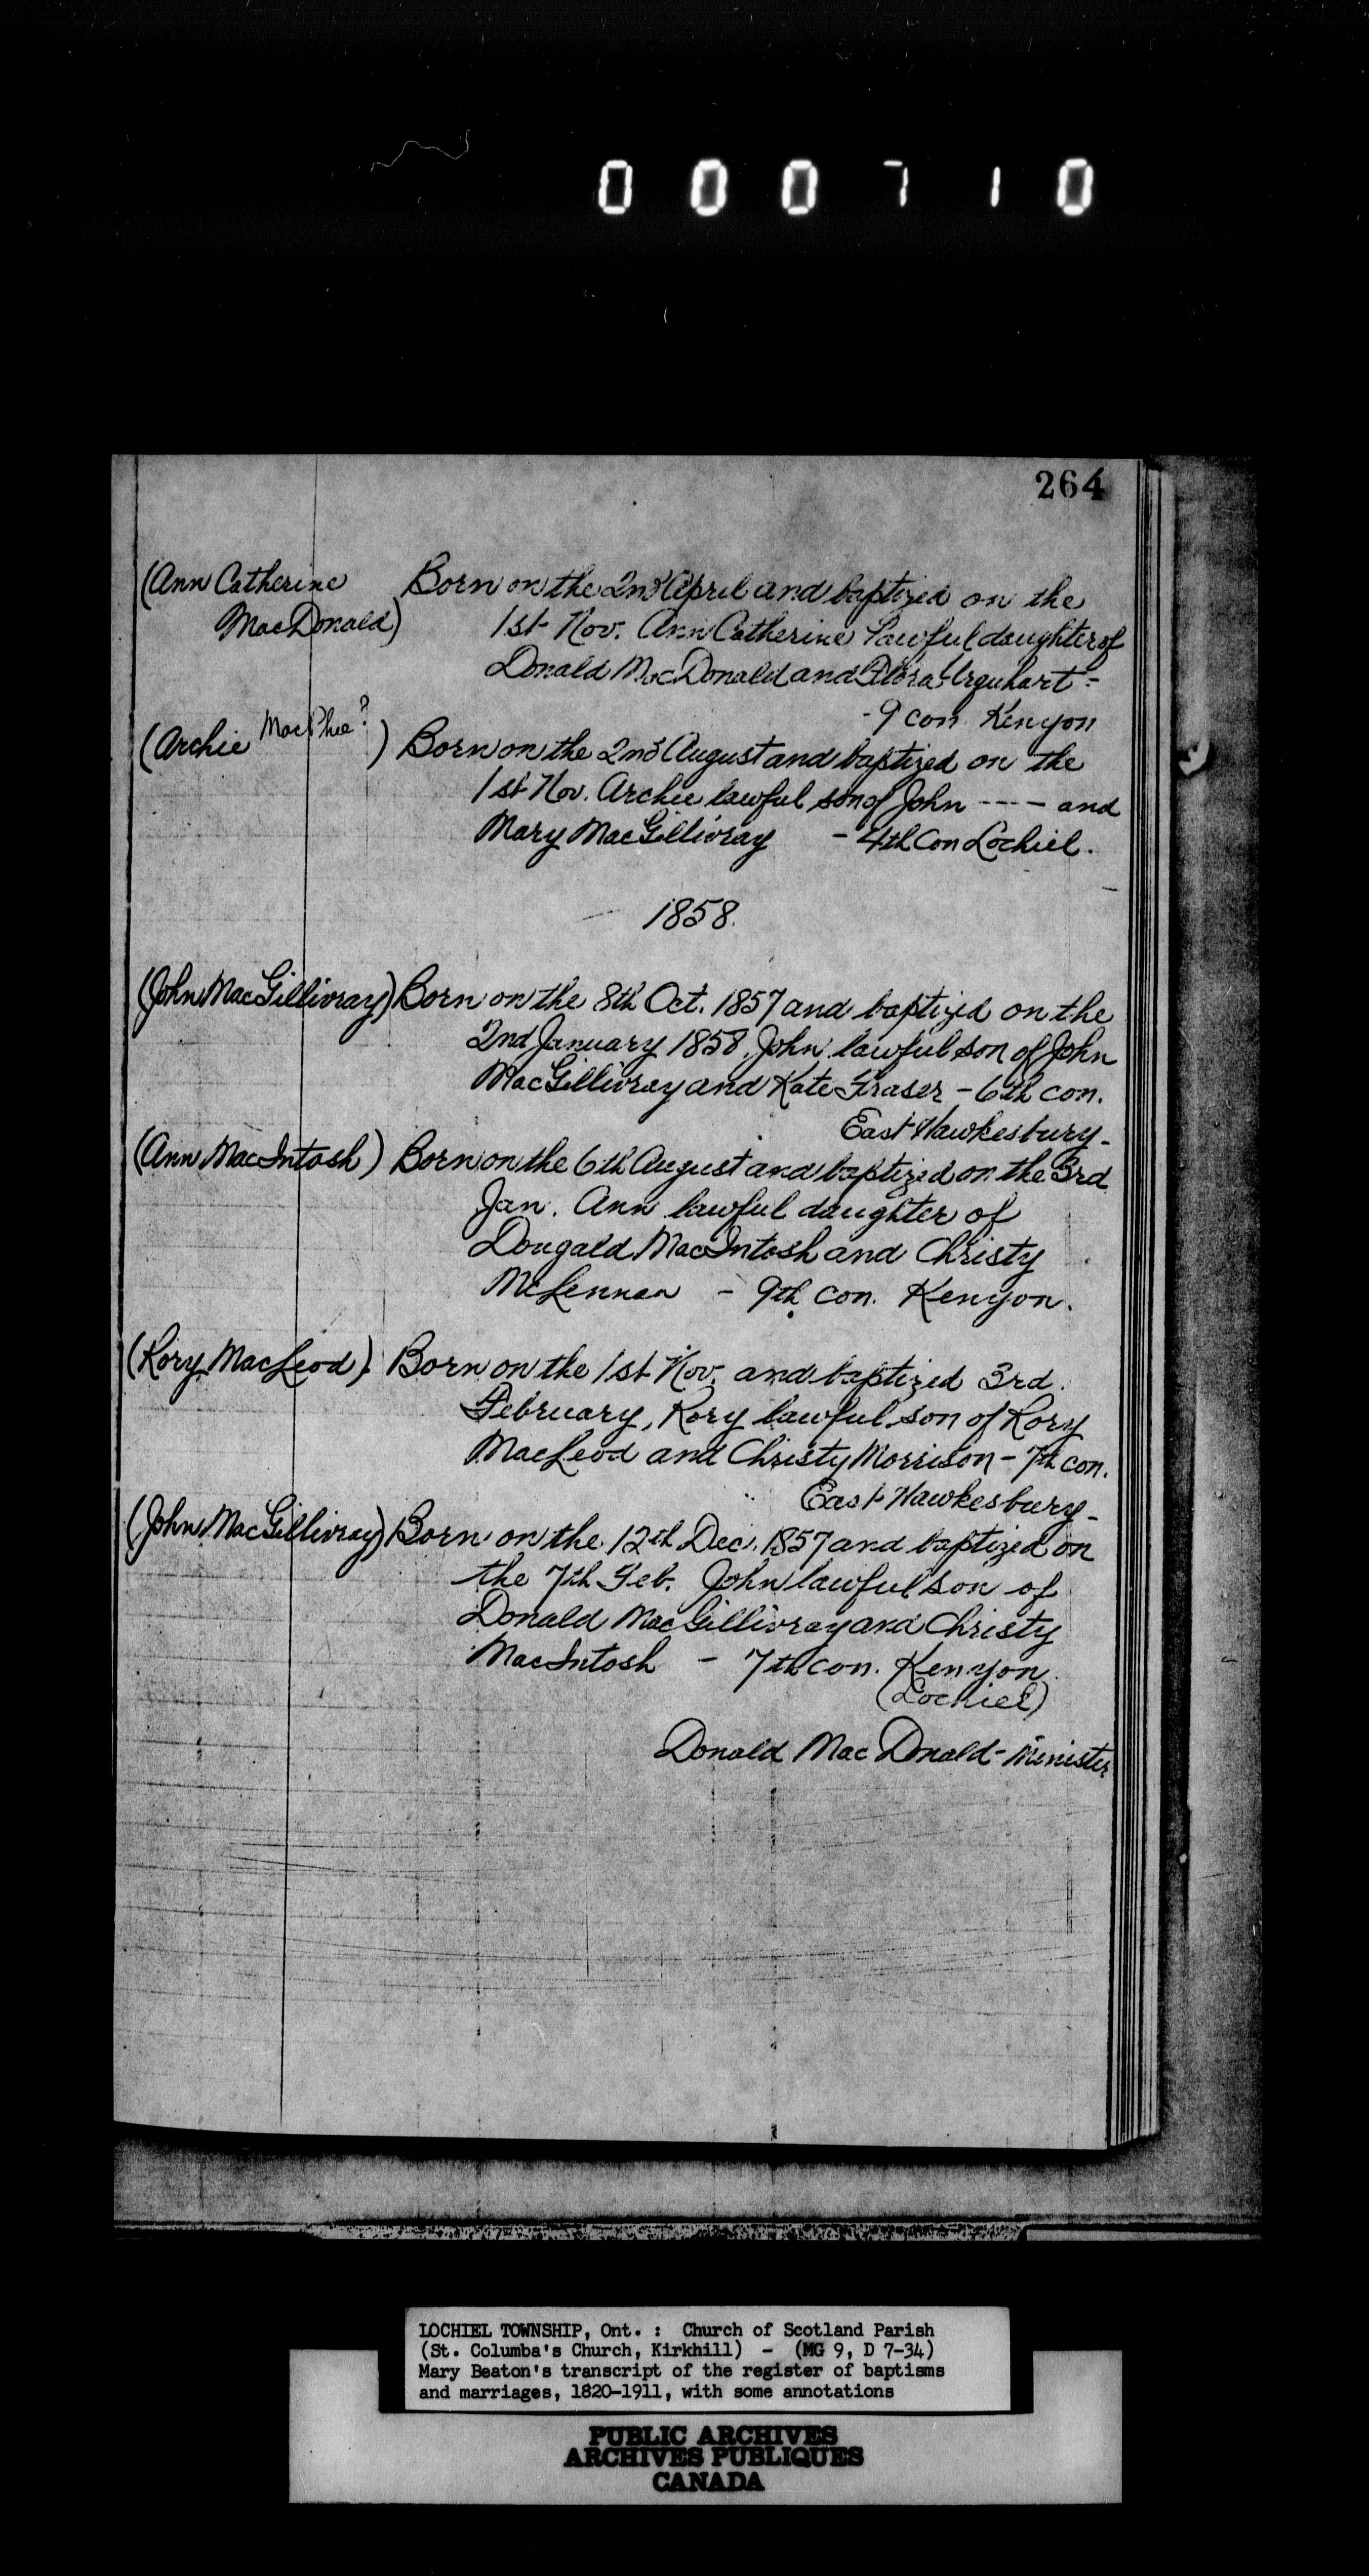 000710
264
(Ann Catherine Born on the 2nd April and baptized on the
MacDonald) 1st Nov. Ann Catherine lawful daughter of
Donald MacDonald and Flora Urquhart -
- 9 con. Kenyon
(Archie MacPhee?) Born on the 2nd August and baptized on the
1st Nov. Archie lawful son of John ---- and
Mary MacGillivray - 4th Con Lochiel.
1858.
(John MacGillivray) Born on the 8th Oct. 1857 and baptized on the
2nd January 1858. John lawful son of John
MacGillivray and Kate Fraser - 6th con.
East Hawkesbury -
(Ann MacIntosh) Born on the 6th August and baptized on the 3rd
Jan. Ann lawful daughter of
Dougald MacIntosh and Christy
McLennan - 9th con. Kenyon.
(Rory MacLeod). Born on the 1st Nov. and baptized 3rd.
February, Rory lawful son of Rory
MacLeod and Christy Morrison - 7th con.
East Hawkesbury -
(John MacGillivray) Born on the 12th Dec. 1857 and baptized on
the 7th Feb. John lawful son of
Donald MacGillivray and Christy
MacIntosh - 7th con. Kenyon.
(Lochiel)
Donald MacDonald - Minister
LOCHIEL TOWNSHIP, Ont. : Church of Scotland Parish
(St. Columba's Church, Kirkhill) - (MG 9, D 7-34)
Mary Beaton's transcript of the register of baptisms
and marriages, 1820-1911, with some annotations
PUBLIC ARCHIVES
ARCHIVES PUBLIQUES
CANADA